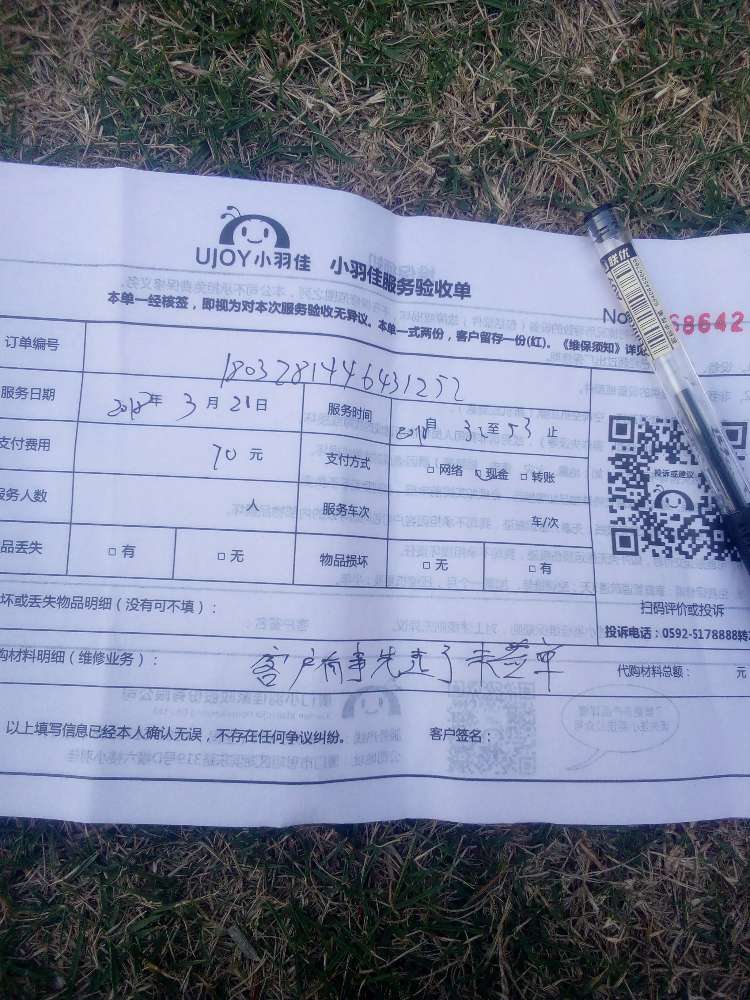 UJOY小羽佳 小羽佳服务验收单
本单一经核签,即视为对本次服务验收无异议。本单一式两份,客户留存一份(红)。《维保须知》详见
No 68642
订单编号 1803281446431252
服务日期 2018年 3月 21日 服务时间 至 止
支付费用 70元 支付方式 □网络 □现金 □转账
服务人数 人 服务车次 车/次
品丢失 □有 □无 物品损坏 □无 □有
投诉或建议
扫码评价或投诉
坏或丢失物品明细(没有可不填):
投诉电话:0592-5178888转
购材料明细(维修业务): 客户有事先走了 未签单 代购材料总额: 元
以上填写信息已经本人确认无误,不存在任何争议纠纷。 客户签名: